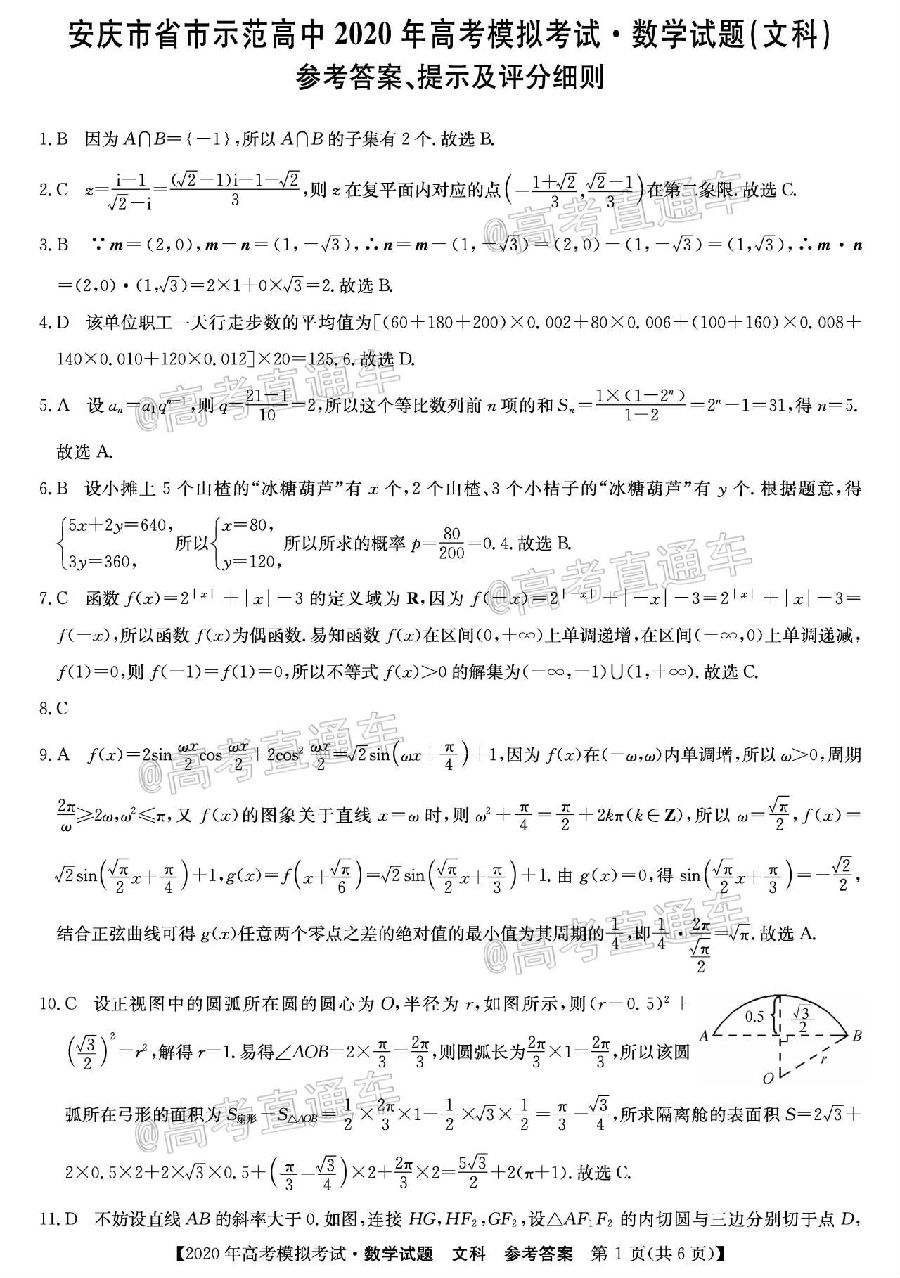 安庆市省市示范高中 2020 年高考模拟考试·数学试题(文科)
参考答案、提示及评分细则
1. B 因为 A∩B={-1},所以 A∩B 的子集有 2 个. 故选 B.
2. C z=(i-1)/(√2-i)=((√2-1)i-1-√2)/3,则 z 在复平面内对应的点(-(1+√2)/3,(√2-1)/3)在第二象限. 故选 C.
3. B ∵m=(2,0),m-n=(1,-√3),∴n=m-(1,-√3)=(2,0)-(1,-√3)=(1,√3),∴m·n
=(2,0)·(1,√3)=2×1+0×√3=2. 故选 B.
4. D 该单位职工一天行走步数的平均值为[(60+180+200)×0.002+80×0.006+(100+160)×0.008+
140×0.010+120×0.012]×20=125.6. 故选 D.
5. A 设 aₙ=a₁qⁿ⁻¹,则 q=(21-1)/10=2,所以这个等比数列前 n 项的和 Sₙ=(1×(1-2ⁿ))/(1-2)=2ⁿ-1=31,得 n=5.
故选 A.
6. B 设小摊上 5 个山楂的“冰糖葫芦”有 x 个,2 个山楂、3 个小桔子的“冰糖葫芦”有 y 个. 根据题意,得
{5x+2y=640, 3y=360, 所以{x=80, y=120, 所以所求的概率 p=80/200=0.4. 故选 B.
7. C 函数 f(x)=2^|x|+|x|-3 的定义域为 R,因为 f(-x)=2^|-x|+|-x|-3=2^|x|+|x|-3=
f(-x),所以函数 f(x)为偶函数. 易知函数 f(x)在区间(0,+∞)上单调递增,在区间(-∞,0)上单调递减,
f(1)=0,则 f(-1)=f(1)=0,所以不等式 f(x)>0 的解集为(-∞,-1)∪(1,+∞). 故选 C.
8. C
9. A f(x)=2sin(ωx/2)cos(ωx/2)+2cos²(ωx/2)=√2sin(ωx+π/4)+1,因为 f(x)在(-ω,ω)内单调增,所以 ω>0,周期
2π/ω≥2ω,ω²≤π,又 f(x)的图象关于直线 x=ω 时,则 ω²+π/4=π/2+2kπ(k∈Z),所以 ω=√π/2,f(x)=
√2sin(√π/2 x+π/4)+1,g(x)=f(x+√π/6)=√2sin(√π/2 x+π/3)+1. 由 g(x)=0,得 sin(√π/2 x+π/3)=-√2/2,
结合正弦曲线可得 g(x)任意两个零点之差的绝对值的最小值为其周期的1/4,即1/4·2π/(√π/2)=√π. 故选 A.
10. C 设正视图中的圆弧所在圆的圆心为 O,半径为 r,如图所示,则(r-0.5)²+
(√3/2)²=r²,解得 r=1. 易得∠AOB=2×π/3=2π/3,则圆弧长为2π/3×1=2π/3,所以该圆
弧所在弓形的面积为 S扇形-S△AOB=1/2×2π/3×1-1/2×√3×1/2=π/3-√3/4,所求隔离舱的表面积 S=2√3+
2×0.5×2+2×√3×0.5+(π/3-√3/4)×2+2π/3×2=5√3/2+2(π+1). 故选 C.
0.5 √3/2
A B
r
O
11. D 不妨设直线 AB 的斜率大于 0. 如图,连接 HG,HF₂,GF₂,设△AF₁F₂ 的内切圆与三边分别切于点 D,
【2020 年高考模拟考试·数学试题 文科 参考答案 第 1 页(共 6 页)】
@高考直通车
@高考直通车
@高考直通车
@高考直通车
@高考直通车
@高考直通车